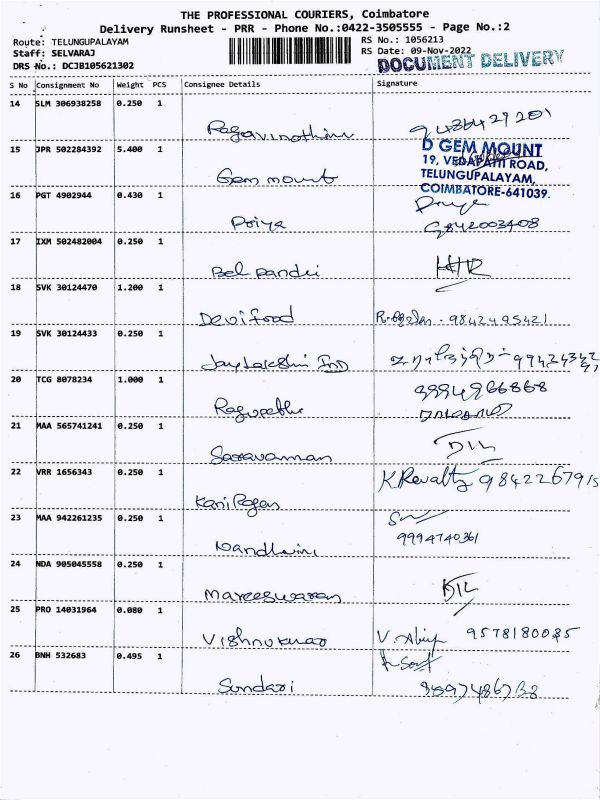 THE PROFESSIONAL COURIERS, Coimbatore
Delivery Runsheet - PRR - Phone No.:0422-3505555 - Page No.:2
Route: TELUNGUPALAYAM
RS No.: 1056213
Staff: SELVARAJ
RS Date: 09-Nov-2022
DRS No.: DCJB105621302
DOCUMENT DELIVERY
S No Consignment No Weight PCS Consignee Details Signature
14 SLM 306938258 0.250 1
15 JPR 502284392 5.400 1
D GEM MOUNT
19, VEDAPATTI ROAD,
TELUNGUPALAYAM,
COIMBATORE-641039.
Gem mount
16 PGT 4902944 0.430 1
Priya
9842003408
17 IXM 502482004 0.250 1
Bel pandi
18 SVK 30124470 1.200 1
Devi food 9842495421
19 SVK 30124433 0.250 1
Jaylakshmi IND
20 TCG 8078234 1.000 1
9994966868
Ragupathi
21 MAA 565741241 0.250 1
Saravannan
22 VRR 1656343 0.250 1
K. Revathy
Kani Rajan
23 MAA 942261235 0.250 1
9994740361
Nandhini
24 NDA 905045558 0.250 1
Mareeswaran
25 PRO 14031964 0.080 1
Vishnukumar 9578180085
26 BNH 532683 0.495 1
Sundari